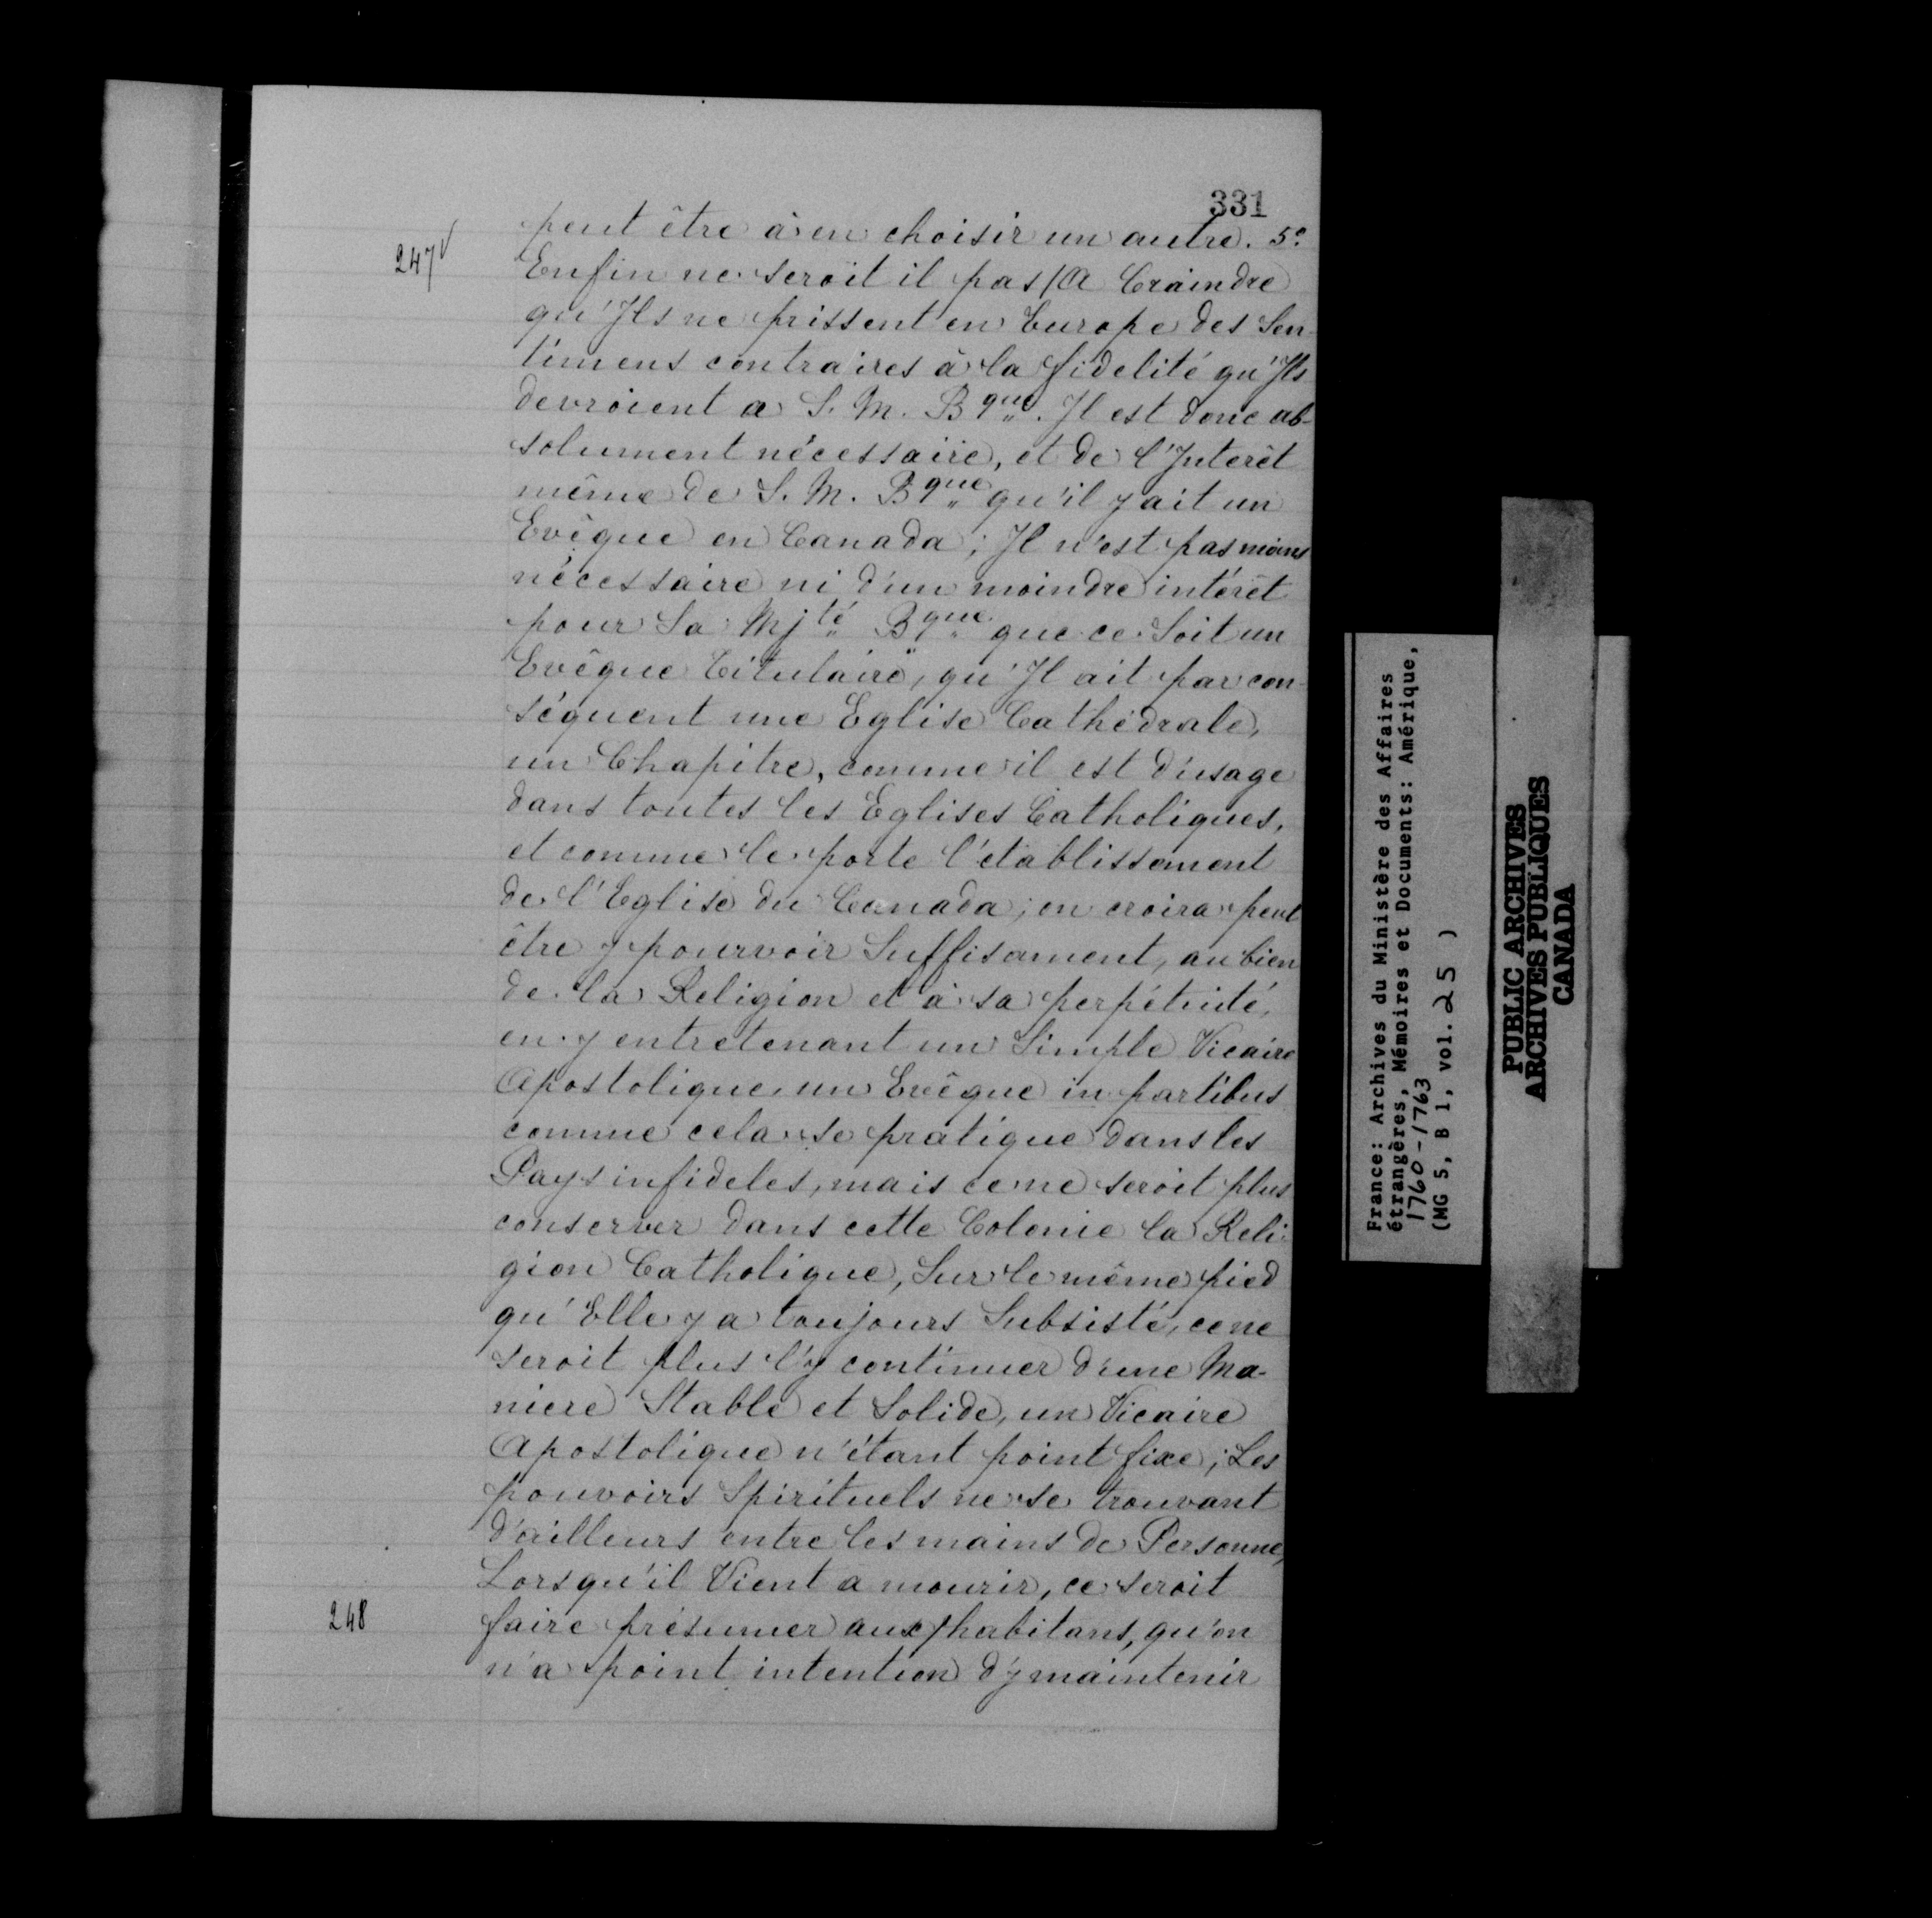 331
peut être à en choisir un autre. 5º
247v
Enfin ne seroit il pas /A Craindre
qu'Ils ne prissent en Europe des Sen-
timens contraires à la fidelité qu'Ils
devroient a S. M. Bque. Il est donc ab-
solument nécessaire, et de l'Interêt
même de S. M. Bque qu'il y ait un
Evêque en Canada; Il n'est pas moins
nécessaire ni d'un moindre intérêt
pour Sa Mjté Bque que ce Soit un
Evêque Titulaire, qu'Il ait par con-
séquent une Eglise Cathédrale,
un Chapitre, comme il est d'usage
dans toutes les Eglises Catholiques,
et comme le porte l'etablissement
de l'Eglise du Canada; on croira peut
être y pourvoir Suffisament, au bien
de la Religion et à sa perpétuité,
en y entretenant un Simple Vicaire
Apostolique, un Evêque in partibus
comme cela se pratique dans les
Pays infideles, mais ce ne seroit plus
conserver dans cette Colonie la Reli-
gion Catholique, Sur le même pied
qu'Elle y a toujours Subsisté, ce ne
seroit plus l'y continuer d'une Ma-
niere Stable et Solide, un Vicaire
Apostolique n'étant point fixe; Les
pouvoirs Spirituels ne se trouvant
d'ailleurs entre les mains de Personne,
Lorsqu'il Vient a mourir, ce seroit
248
faire présumer aux/habitans, qu'on
n'a point intention d'y maintenir
France: Archives du Ministère des Affaires
étrangères, Mémoires et Documents: Amérique,
1760-1763
(MG 5, B 1, vol. 25 )
PUBLIC ARCHIVES
ARCHIVES PUBLIQUES
CANADA